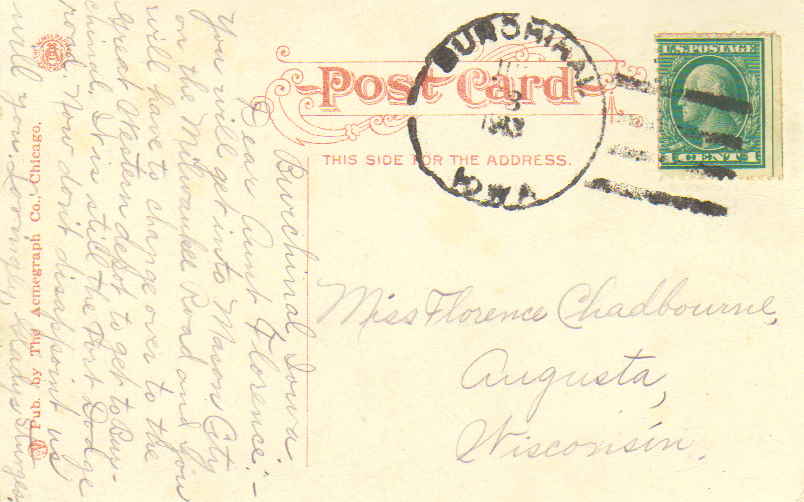 Post Card
THIS SIDE FOR THE ADDRESS.
BURCHINAL
8
IOWA
U.S. POSTAGE
1 CENT 1
Miss Florence Chadbourne,
Augusta,
Wisconsin.
Burchinal Iowa
Dear Aunt Florence:-
You will get into Mason City
on the Milwaukee Road and you
will have to change over to the
Great Western depot to get to Bur-
chinal. It is still the Fort Dodge
road. Now don't disappoint us
will you. Lovingly, Gladys Sturges.
Pub. by The Acmegraph Co., Chicago.